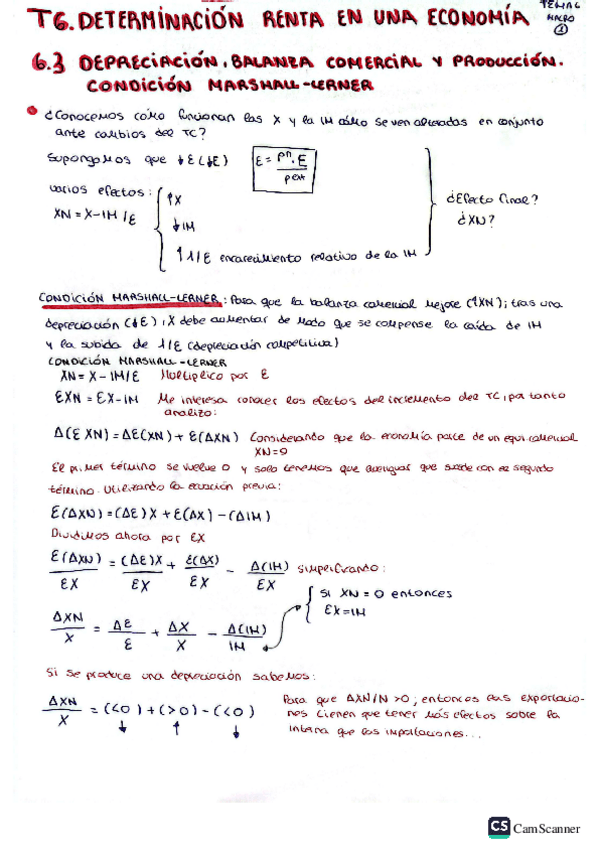 T6. DETERMINACIÓN RENTA EN UNA ECONOMÍA
TEMA 6
MACRO
①
6.3 DEPRECIACIÓN, BALANZA COMERCIAL Y PRODUCCIÓN.
CONDICIÓN MARSHALL-LERNER
¿Conocemos cómo funcionan las X y la IM cómo se ven alteradas en conjunto
ante cambios del TC?
Supongamos que ↓E (↓ε)
ε = Pⁿ·E / Pext
varios efectos:
XN = X-IM/ε
↑X
↓IM
↑1/ε encarecimiento relativo de la IM
¿Efecto final?
¿XN?
CONDICIÓN MARSHALL-LERNER: Para que la balanza comercial mejore (↑XN); tras una
depreciación (↓ε), X debe aumentar de modo que se compense la caída de IM
y la subida de 1/ε (depreciación competitiva)
CONDICIÓN MARSHALL-LERNER
XN = X-IM/ε Multiplico por ε
εXN = εX-IM Me interesa conocer los efectos del incremento del TC, por tanto
analizo:
Δ(ε XN) = Δε(XN) + ε(ΔXN) Considerando que la economía parte de un equi. comercial
XN=0
El primer término se vuelve 0 y solo tenemos que averiguar que sucede con el segundo
término. Utilizando la ecuación previa:
ε(ΔXN) = (Δε)X + ε(ΔX) - (ΔIM)
Dividimos ahora por εX
ε(ΔXN)/εX = (Δε)X/εX + ε(ΔX)/εX - Δ(IM)/εX simplificando:
si XN = 0 entonces
εX = IM
ΔXN/X = Δε/ε + ΔX/X - Δ(IM)/IM
Si se produce una depreciación sabemos:
ΔXN/X = (<0) + (>0) - (<0)
↓ ↑ ↓
Para que ΔXN/N >0; entonces las exportacio-
nes tienen que tener más efectos sobre la
interna que las importaciones...
CS CamScanner